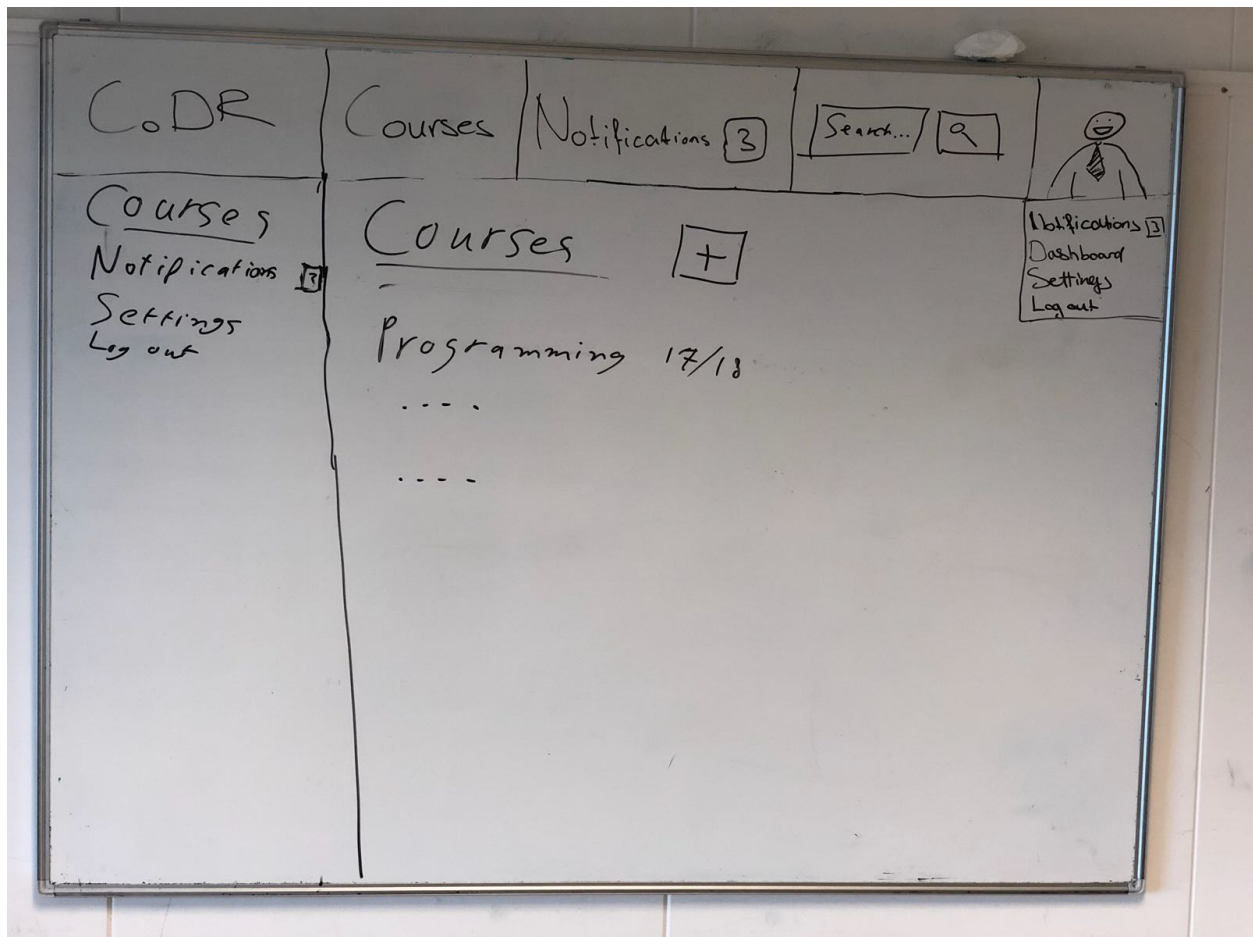 CoDR
Courses
Notifications 3
Search...
Courses
Notifications 3
Settings
Log out
Courses +
Programming 17/18
....
....
Notifications 3
Dashboard
Settings
Log out